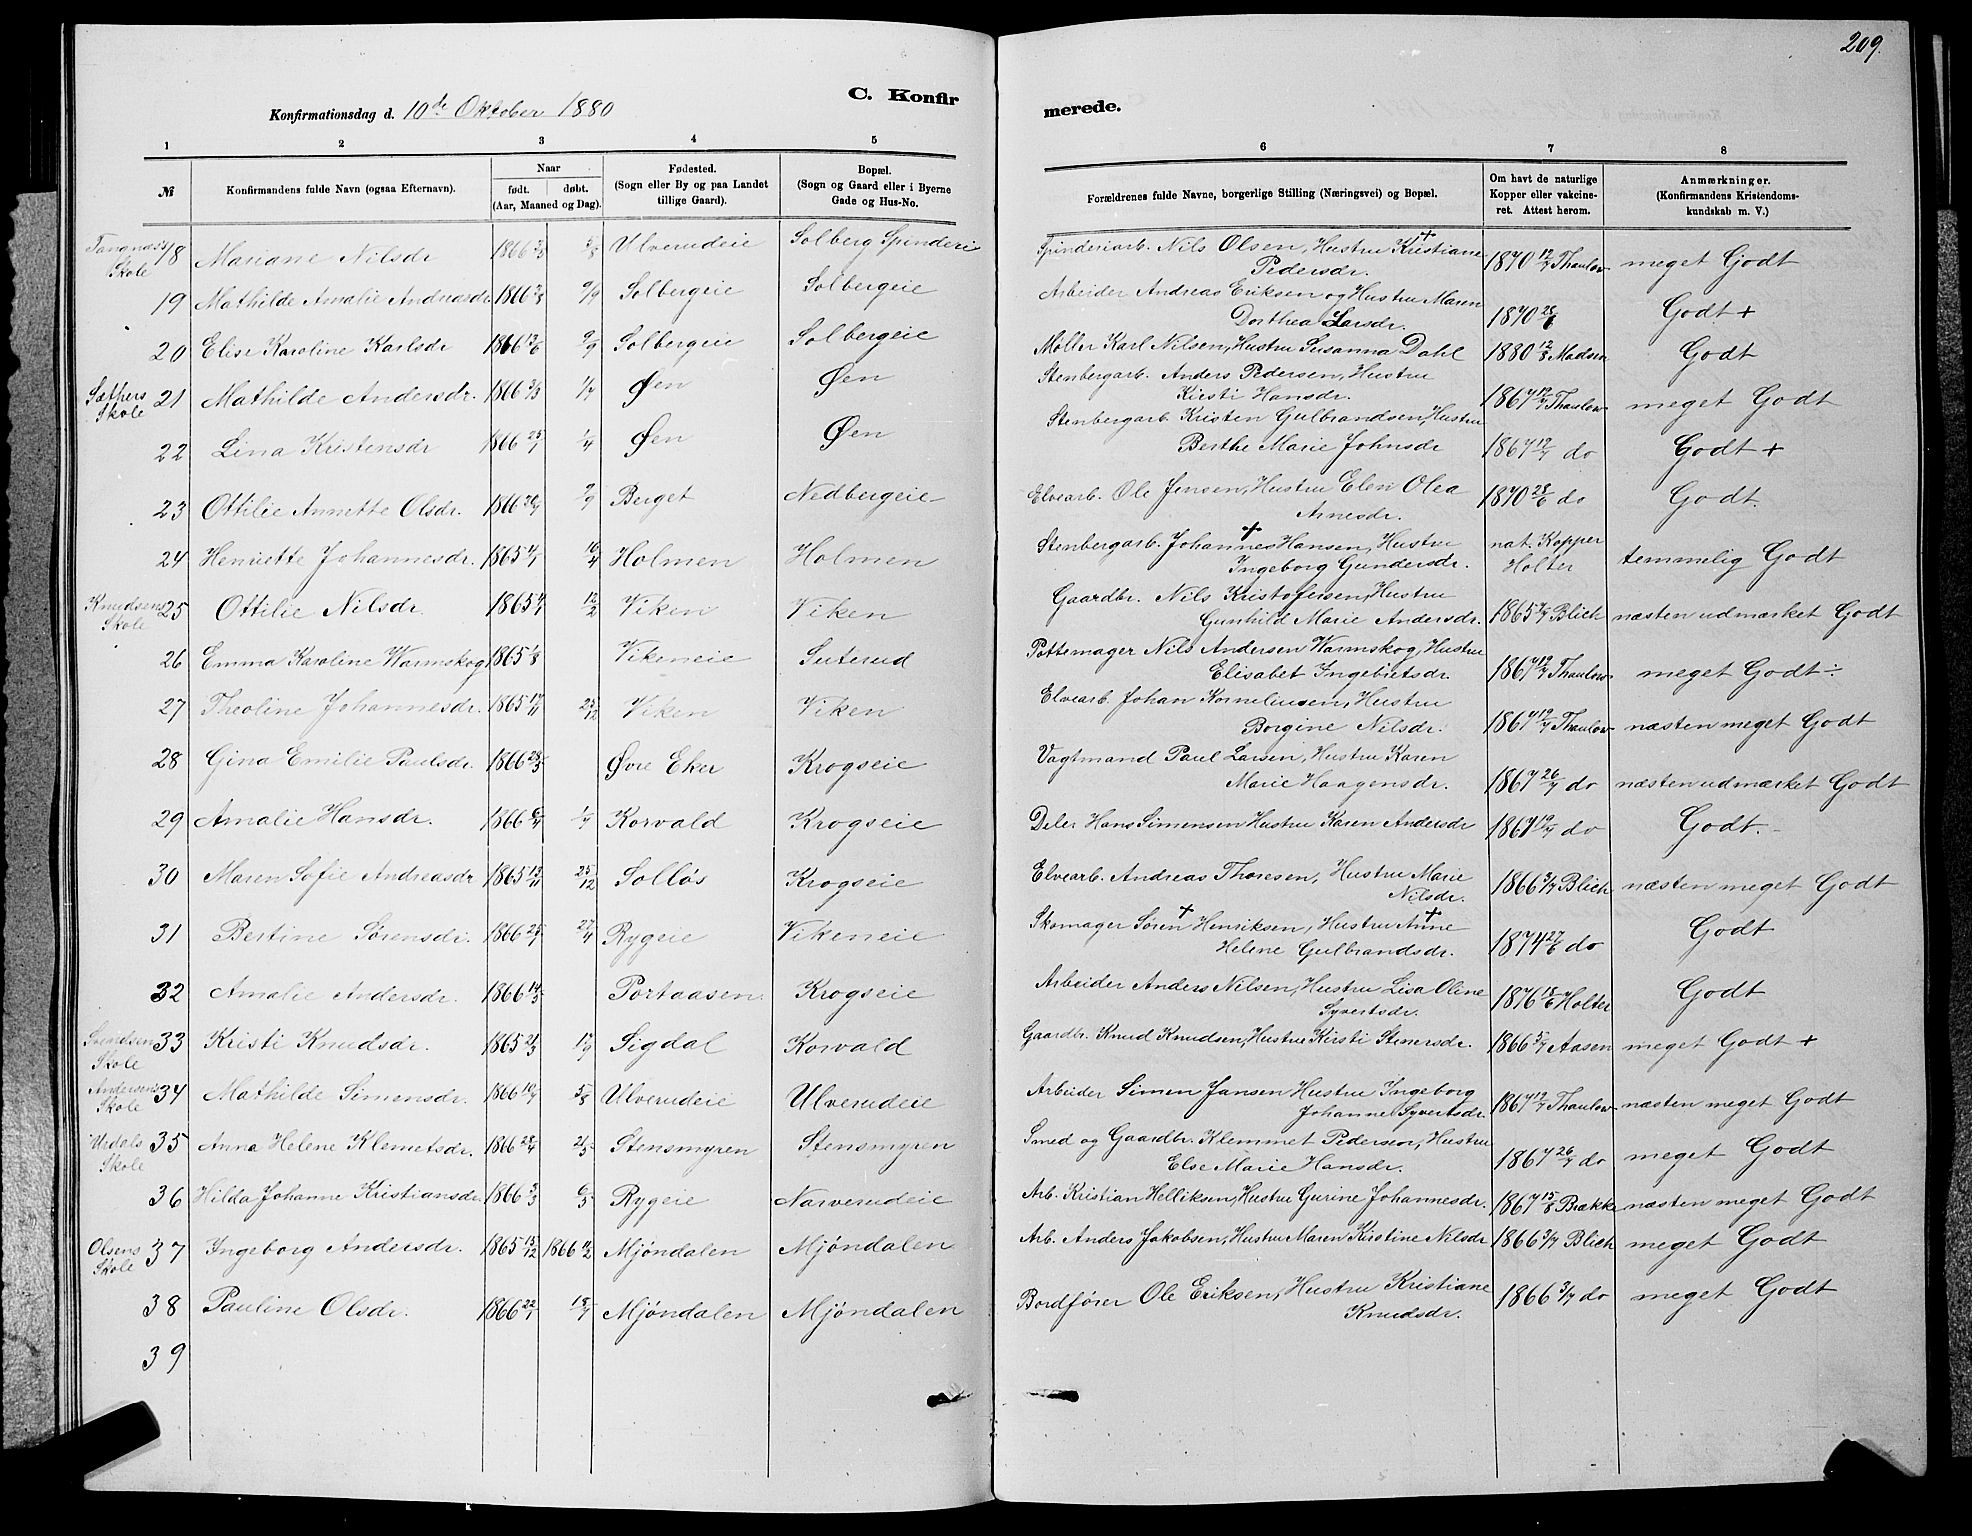 209.
C. Konfir
merede.
Konfirmationsdag d. 10de Oktober 1880
1 2 3 4 5
6 7 8
№
Konfirmandens fulde Navn (ogsaa Efternavn).
Naar
født. døbt.
(Aar, Maaned og Dag).
Fødested.
(Sogn eller By og paa Landet
tillige Gaard).
Bopæl.
(Sogn og Gaard eller i Byerne
Gade og Hus-No.
Forældrenes fulde Navne, borgerlige Stilling (Næringsvei) og Bopæl.
Om havt de naturlige
Kopper eller vakcine-
ret. Attest herom.
Anmærkninger.
(Konfirmandens Kristendoms-
kundskab m. V.)
Skole 18 Mariane Nilsdr 1866 Ulverudeie Solberg Spinderi Spinderiarb. Nils Olsen, Hustru Kristiane + Pedersdr. 1870 12/7 Thaulow meget Godt
19 Mathilde Amalie Andreasdr 1866 9/9 Solbergeie Solbergeie Arbeider Andreas Eriksen og Hustru Maren Dorthea Larsdr. 1870 28/6 Godt +
20 Elise Karoline Karlsdr 1866 9/9 Solbergeie Solbergeie Møller Karl Nilsen, Hustru Susanna Dahl 1880 12/8 Madsen Godt
Sethers Skole 21 Mathilde Andersdr. 1866 1/7 Øen Øen Stenbergarb. Anders Pedersen, Hustru Kirsti Hansdr. 1867 12/7 Thaulow meget Godt
22 Lina Kristensdr 1866 25/1 1/4 Øen Øen Stenbergarb. Kristen Gulbrandsen, Hustru Berthe Marie Johnsdr 1867 12/7 do Godt +
23 Ottilie Annette Olsdr. 1866 9/9 Berget Nedbergeie Elvearb. Ole Jensen, Hustru Elen Olea Arnesdr. 1870 28/6 do Godt.
24 Henriette Johannesdr. 1865 16/4 Holmen Holmen Stenbergarb. Johannes + Hansen, Hustru Ingeborg Gundersdr. nat. Kopper Holter temmelig Godt
Knudsens Skole 25 Ottilie Nilsdr. 1865 12/2 Viken Viken Gaardbr. Nils Kristofersen, Hustru Gunhild Marie Andersdr. 1865 Blich næsten udmærket Godt
26 Emma Karoline Warmskog 1865 Vikeneie Seterud Pottemager Nils Andersen Warmskog, Hustru Elisabet Ingebretsdr. 1867 12/7 Thaulow meget Godt ÷
27 Theoline Johannesdr. 1865 25/12 Viken Viken Elvearb. Johan Korneliusen, Hustru Borgine Nilsdr. 1867 Thaulow næsten meget Godt
28 Gina Emilie Paulsdr. 1866 Øvre Eker Krogseie Vagtmand Paul Larsen, Hustru Karen Marie Haagensdr. 1867 26/7 do næsten udmærket Godt
29 Amalie Hansdr. 1866 Korvald Krogseie Deler Hans Simensen Hustru Karen Andersdr 1867 do Godt.
30 Maren Sofie Andreasdr 1865 13/11 25/12 Solløs Krogseie Elvearb. Andreas Thoresen, Hustru Marie Nilsdr. 1866 3/7 Blich næsten meget Godt
31 Bertine Sørensdr. 1866 25/1 27/4 Rygeie Vikeneie Skomager Søren + Henriksen, Hustru Anne + Helene Gulbrandsdr. 1874 27/6 do Godt
32 Amalie Andersdr. 1866 14/5 Portaasen Krogseie Arbeider Anders Nilsen, Hustru Lisa Oline Syvertsdr. 1876 18/6 Holter Godt
Svendsens Skole 33 Kristi Knudsdr. 1865 21/3 17/9 Sigdal Korvald Gaardbr. Knud Knudsen, Hustru Kirsti Stenersdr. 1866 5/7 Aasen meget Godt +
Andersens Skole 34 Mathilde Simensdr. 1866 5/8 Ulverudeie Ulverudeie Arbeider Simen Jansen Hustru Ingeborg Johanne Syvertsdr. 1867 12/7 Thaulow næsten meget Godt
Skole 35 Anna Helene Klemetsdr. 1866 Stensmyren Stensmyren Smed og Gaardbr. Klemmet Pederson, Hustru Else Marie Hansdr. 1867 26/7 do meget Godt
36 Hilda Johanne Kristiansdr. 1866 3/3 6/5 Rygeie Narverudeie Arb. Kristian Helliksen, Hustru Gurine Johannesdr. 1867 15/8 Brække næsten meget Godt
Olsens Skole 37 Ingeborg Andersdr. 1865 1866 Mjøndalen Mjøndalen Arb. Anders Jakobsen, Hustru Maren Kirstine Nilsdr 1866 3/7 Blich meget Godt
38 Pauline Olsdr. 1866 22/1 Mjøndalen Mjøndalen Bordfører Ole Eriksen, Hustru Kristiane Knudsdr. 1866 3/7 do meget Godt
39